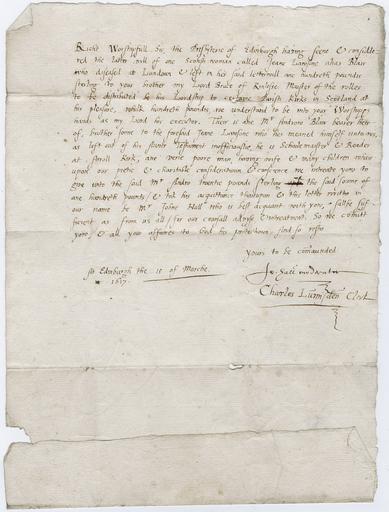 Richt Worshipfull Sr. the Presbyterie of Edinburgh having seene & consid
red the latter will of one Scotish woman called Jeane Lamsone alias Blair
who diseased at Lundoun & left in her said letterwill one hundreth pounds
sterling to your brother my Lord Bruce of Kinlosse Master of the rolles
to be distributed be his Lordship to Parish Kirks in Scotland at
his pleasure, whilk hundreth pounds we understand to be into your Worships
hands as my Lord his executor. There is ane Mr Androw Blair bearer heir
of, brother sone to the foresaid Jeane Lamsone who hes meaned himself unto us,
as left out of his sisters Testament he is Schoolemaster & Reader
at Kirk, ane verie poore man, having wife & many children wher
upon our pitie & charitable consideration & conference we intreate you to
give unto the said Mr Andro twentie pounds sterling of the said soume of
ane hundreth pounds & tak his acquittance thairupon & this letter written in
our name be Mr Johne Hall who is best acquent with you, salbe suf
ficient as from us all for our consent advyse & intreatment. So we committ
you, & all your affaires to God his protectioun, And so rests
yours to be comaunded
Jo. Hall moderator
Charles Lumisden Clerk
At Edinburgh the 11 of Marche
1617